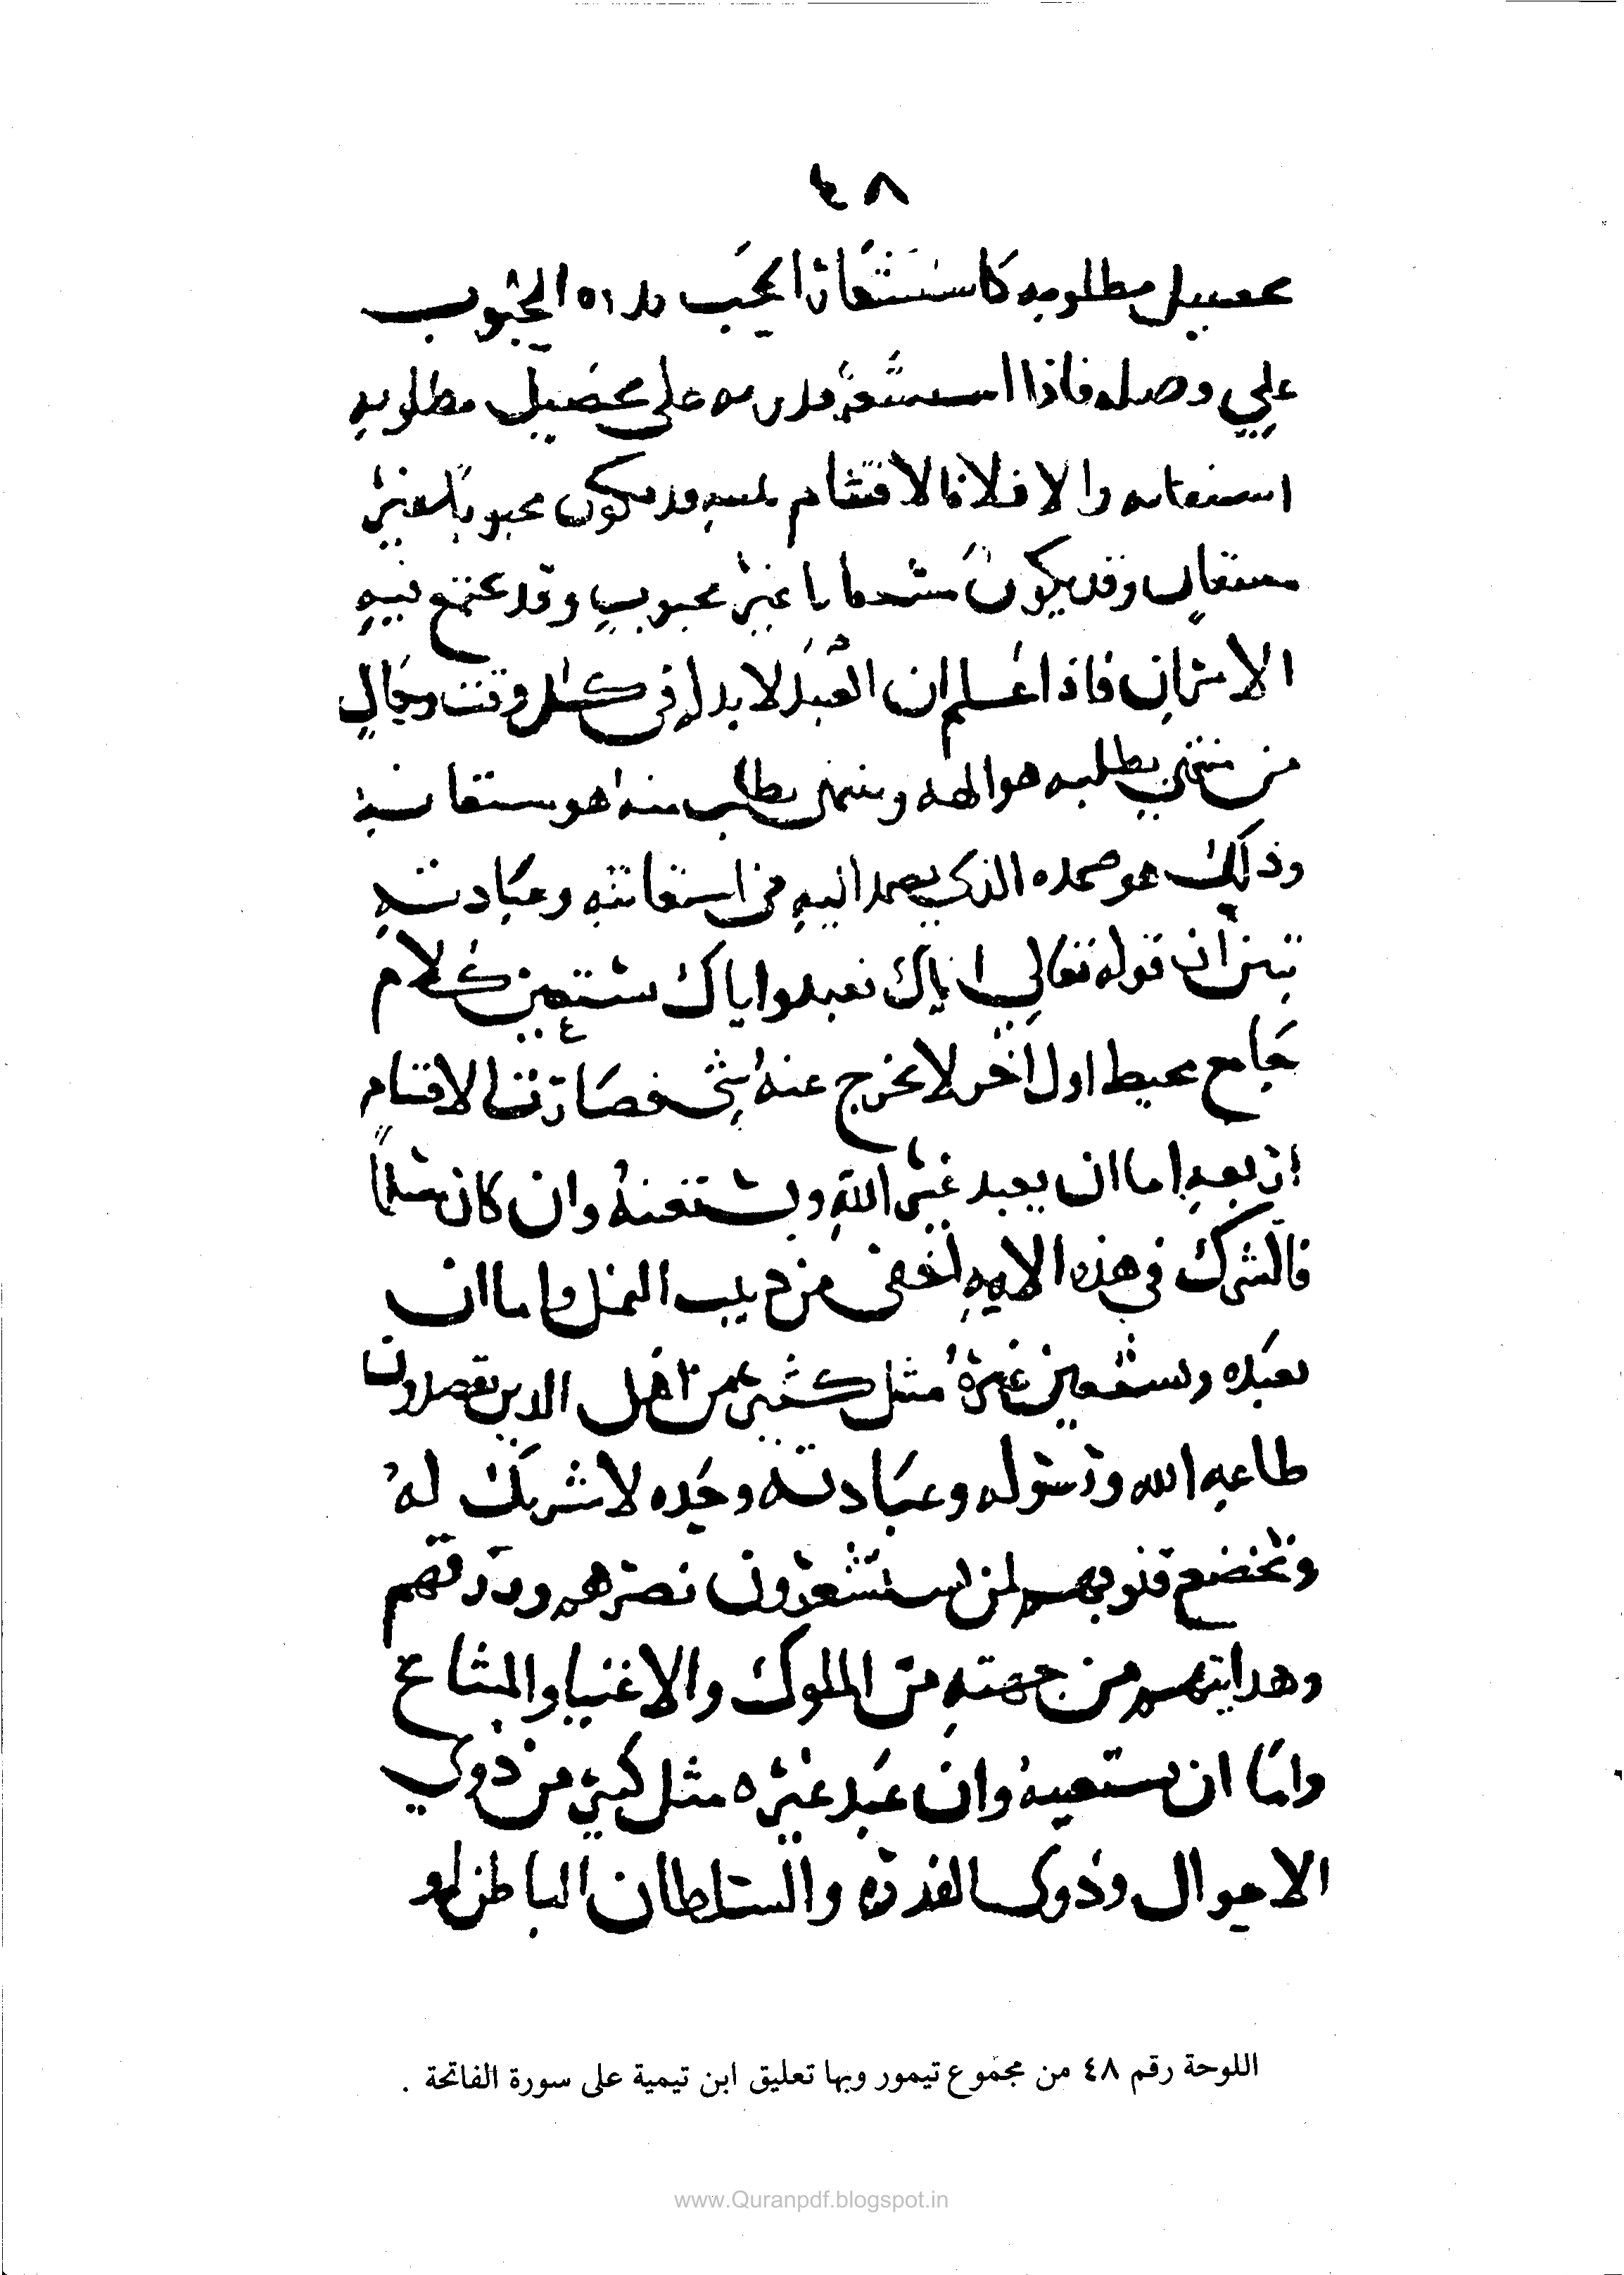 ٤٨
تحصيل مطلوبه كاستشعار المحب قدرة المحبوب
علي وصله فاذا استشعر قدرته على تحصيل مطلوبه
استعانه والا فلا فالاقسام ثلثه فقد يكون محبوبا غير
مستعان وقد يكون مستعانا غير محبوب وقد يجتمع فيه
الامران فاذا علم ان العبد لا بد له في كل وقت وحال
من منتهي يطلبه هو الهه ومنتهى يطلب منه هو مستعانه
وذلك هو صمده الذي يصمد اليه في استعانته وعبادته
تبين ان قوله تعالي اياك نعبد واياك نستعين كلام
جامع محيط اول اخر لا يخرج عنه شي فصارت الاقسام
اربعه اما ان يعبد غير الله ويستعينه وان كان مسلما
فالشرك في هذه الامه اخفى من دبيب النمل واما ان
يعبده ويستعين غيره مثل كثير من اهل الدين يقصدون
طاعه الله ورسوله وعبادته وحده لا شريك له
وتخضع قلوبهم لمن يستشعرون نصرهم ورزقهم
وهدايتهم من جهته من الملوك والاغنيا والمشايخ
واما ان يستعينه وان عبد غيره مثل كثير من ذوي
الاحوال وذوى القدره والسلطان الباطن او
اللوحة رقم ٤٨ من مجموع تيمور وبها تعليق ابن تيمية على سورة الفاتحة .
www.Quranpdf.blogspot.in